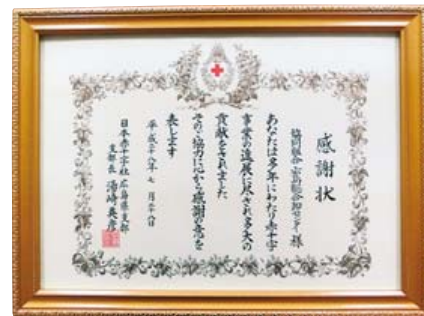 感謝状
協同組合 様
あなたは多年にわたり赤十字
事業の進展に尽され多大の
貢献をされました
その協力に心から感謝の意を
表します
平成二十八年七月二十八日
日本赤十字社広島県支部
支部長 湯崎英彦